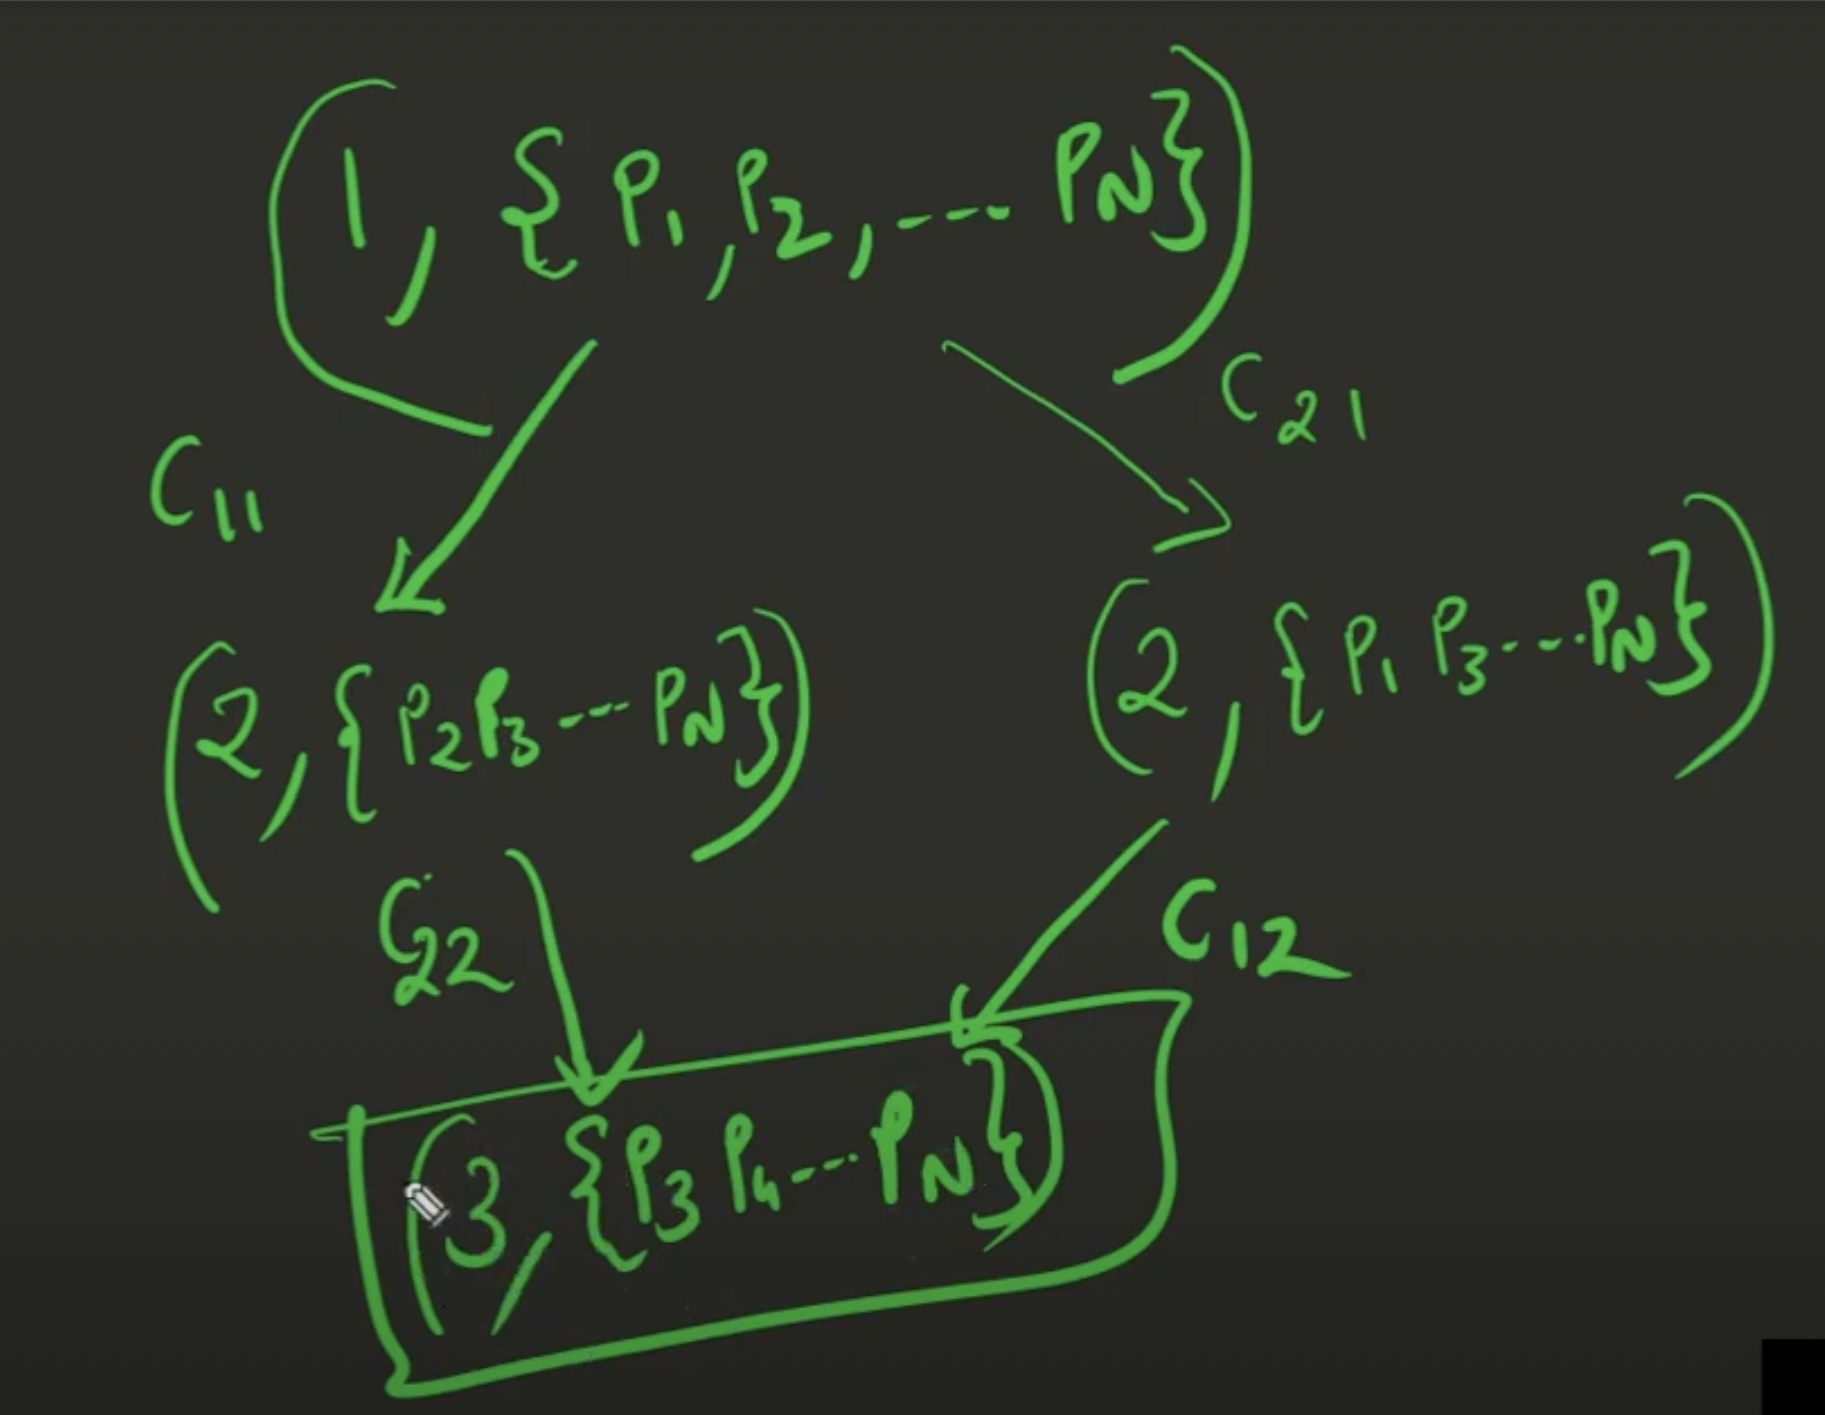 (1, {P₁, P₂, ---- PN})
C₁₁
C₂₁
(2, {P₂P₃ --- PN})
(2, {P₁ P₃ --- PN})
C₂₂
C₁₂
(3, {P₃ P₄ --- PN})